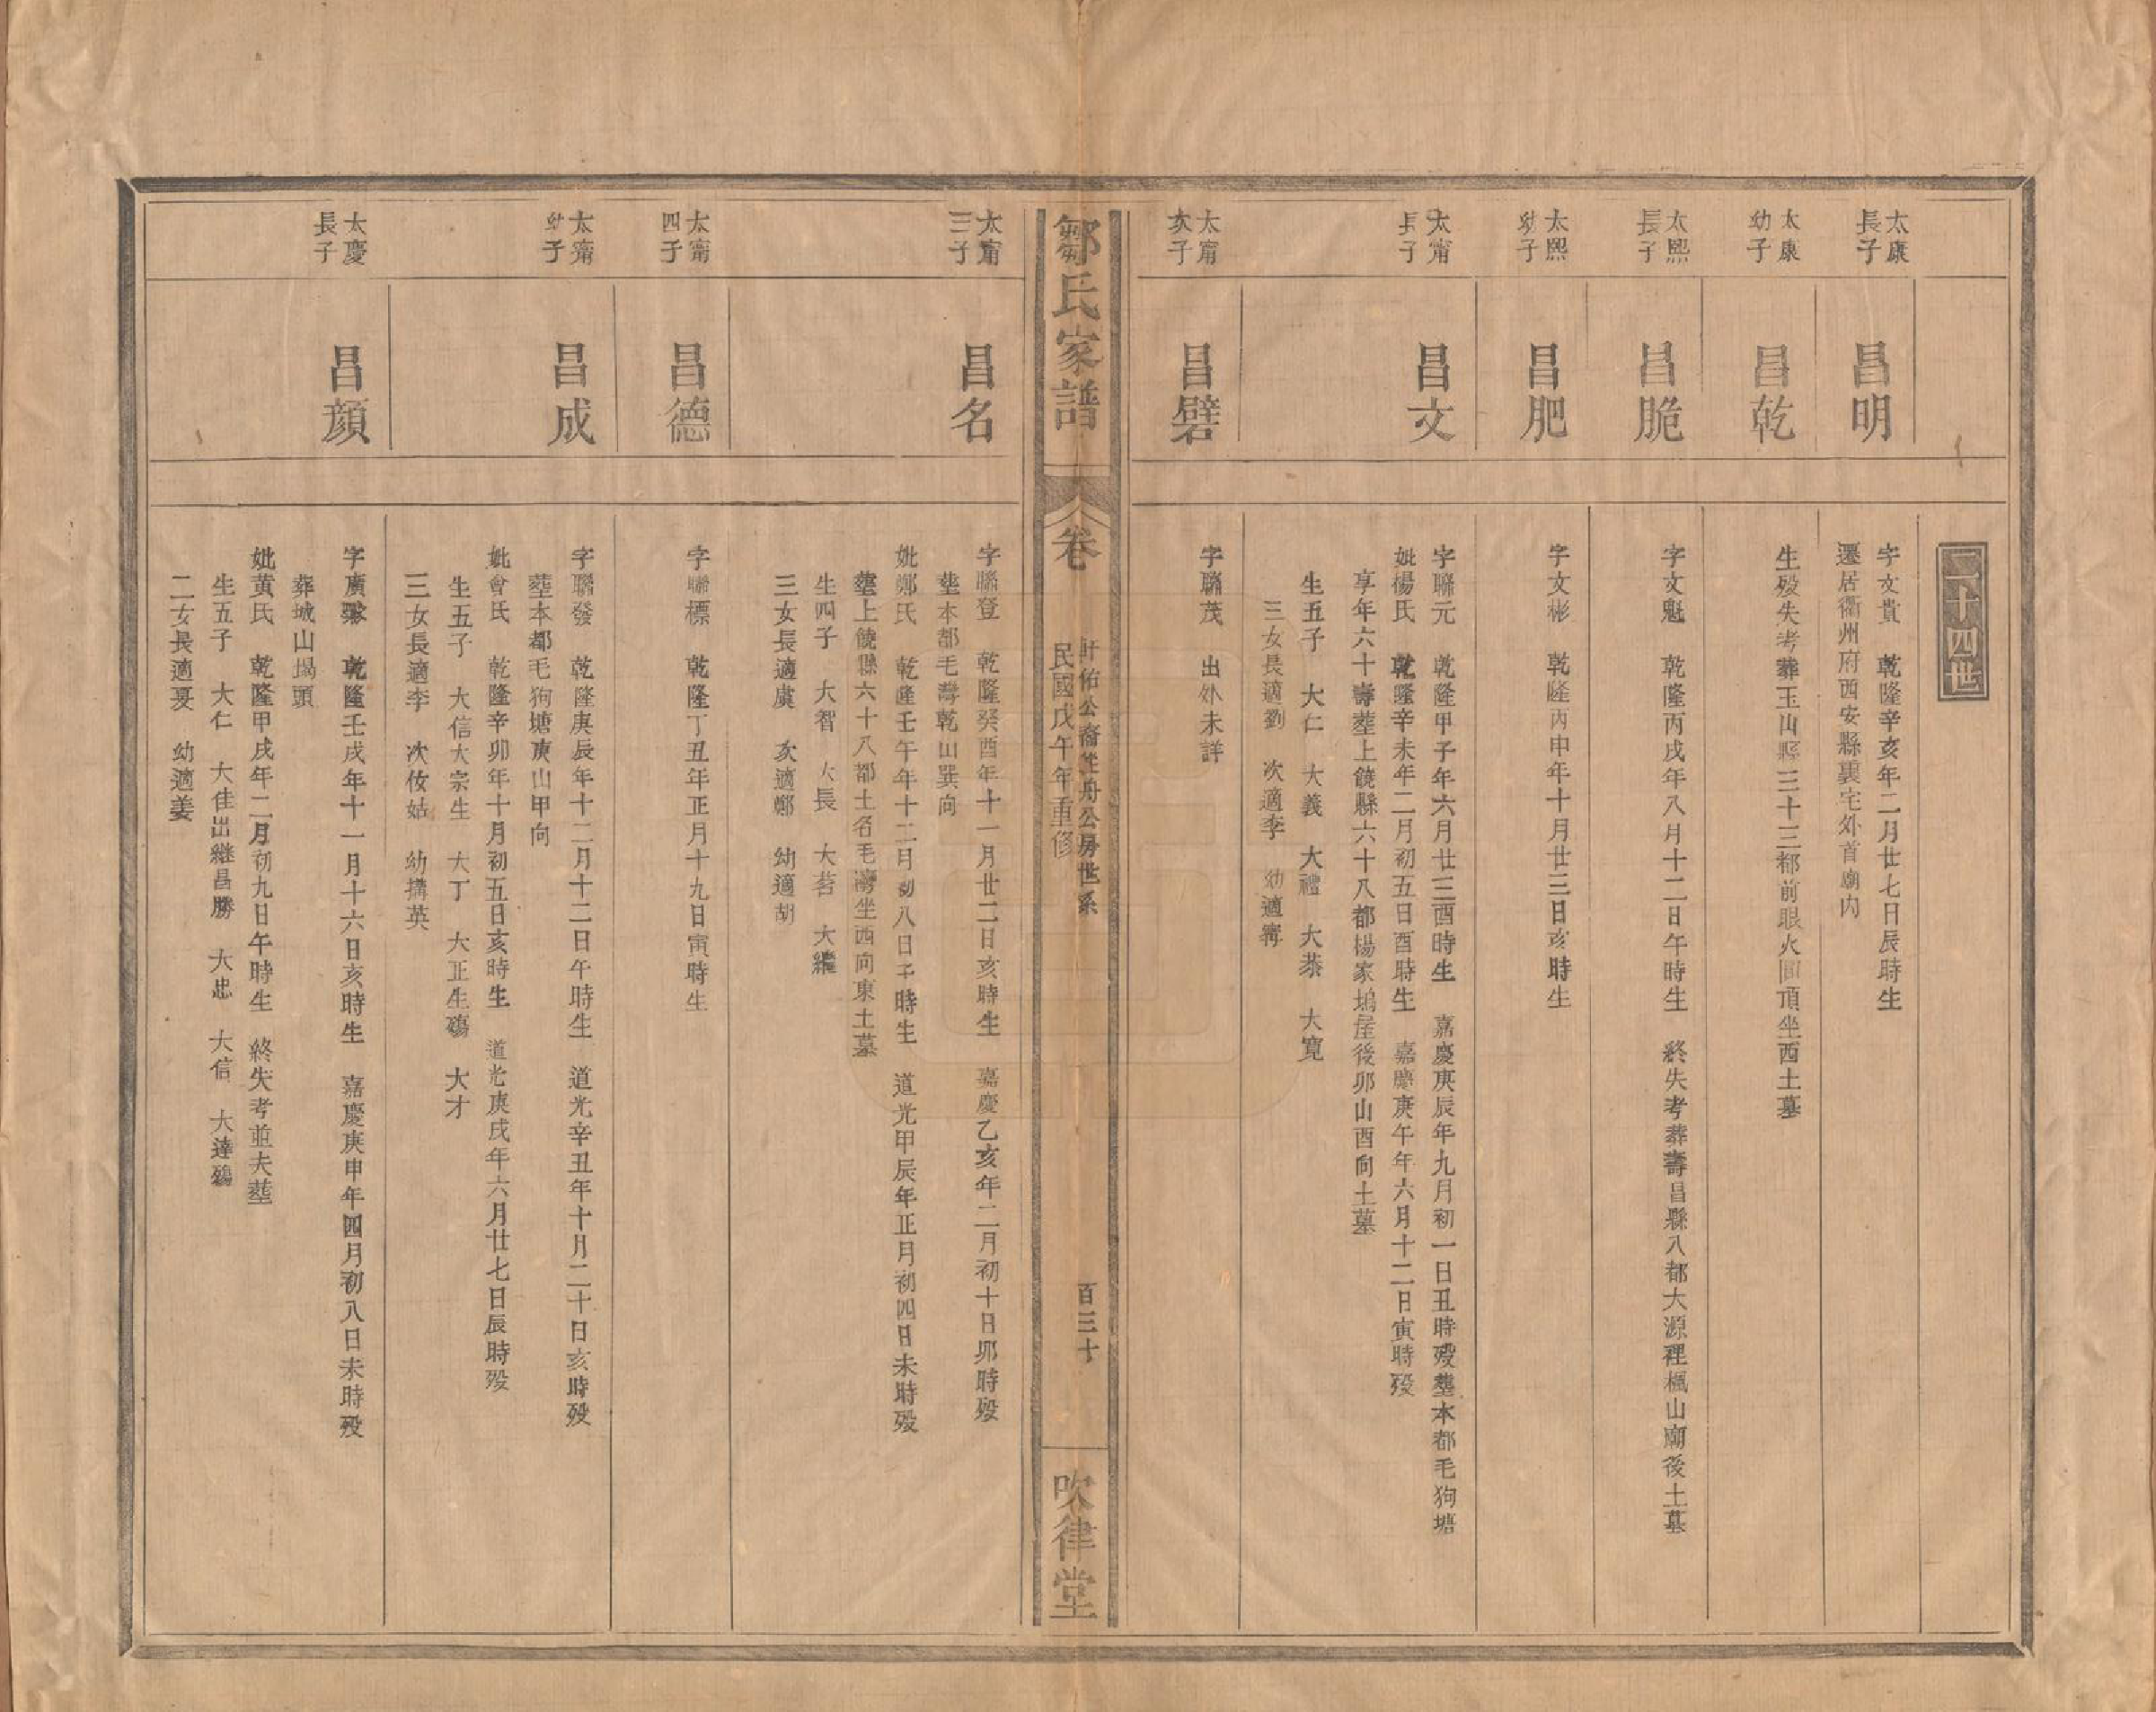 二十四世
太康
長子
昌明
字文貴　乾隆辛亥年二月廿七日辰時生
遷居衢州府西安縣裏宅外首廟內
太康
幼子
昌乾
生殁失考葬玉山縣三十三都前眼火面頂坐西土墓
太熙
長子
昌脆
字文魁　乾隆丙戌年八月十二日午時生　終失考葬壽昌縣八都大源裡楓山廟後土墓
太熙
幼子
昌肥
字文彬　乾隆丙申年十月廿三日亥時生
太甯
長子
昌文
字聯元　乾隆甲子年六月廿三酉時生　嘉慶庚辰年九月初一日丑時殁塟本都毛狗塘
妣楊氏　乾隆辛未年二月初五日酉時生　嘉慶庚午年六月十二日寅時殁
享年六十壽塟上饒縣六十八都楊家塢屋後卯山酉向土墓
生五子　大仁　大義　大禮　大恭　大寬
三女長適劉　次適李　幼適甯
太甯
次子
昌礕
字聯茂　出外未詳
鄒氏家譜
卷
軒佑公裔坐舟公房世系
民國戊午年重修
百三十
吹律堂
太甯
三子
昌名
字聯登　乾隆癸酉年十一月廿二日亥時生　嘉慶乙亥年二月初十日卯時殁
塟本都毛灣乾山巽向
妣鄭氏　乾隆壬午年十二月初八日子時生　道光甲辰年正月初四日未時殁
塟上饒縣六十八都土名毛灣坐西向東土墓
生四子　大智　大長　大茗　大繼
三女長適虞　次適鄭　幼適胡
太甯
四子
昌德
字聯標　乾隆丁丑年正月十九日寅時生
太甯
幼子
昌成
字聯發　乾隆庚辰年十二月十二日午時生　道光辛丑年十月二十日亥時殁
塟本都毛狗塘庚山甲向
妣會氏　乾隆辛卯年十月初五日亥時生　道光庚戌年六月廿七日辰時殁
生五子　大信大宗生　大丁　大正生殤　大才
三女長適李　次伩姑　幼搆英
太慶
長子
昌顏
字廣　乾隆壬戌年十一月十六日亥時生　嘉慶庚申年四月初八日未時殁
葬城山塌頭
妣黄氏　乾隆甲戌年二月初九日午時生　終失考並夫塟
生五子　大仁　大佳出継昌勝　大忠　大信　大達殤
二女長適夏　幼適姜